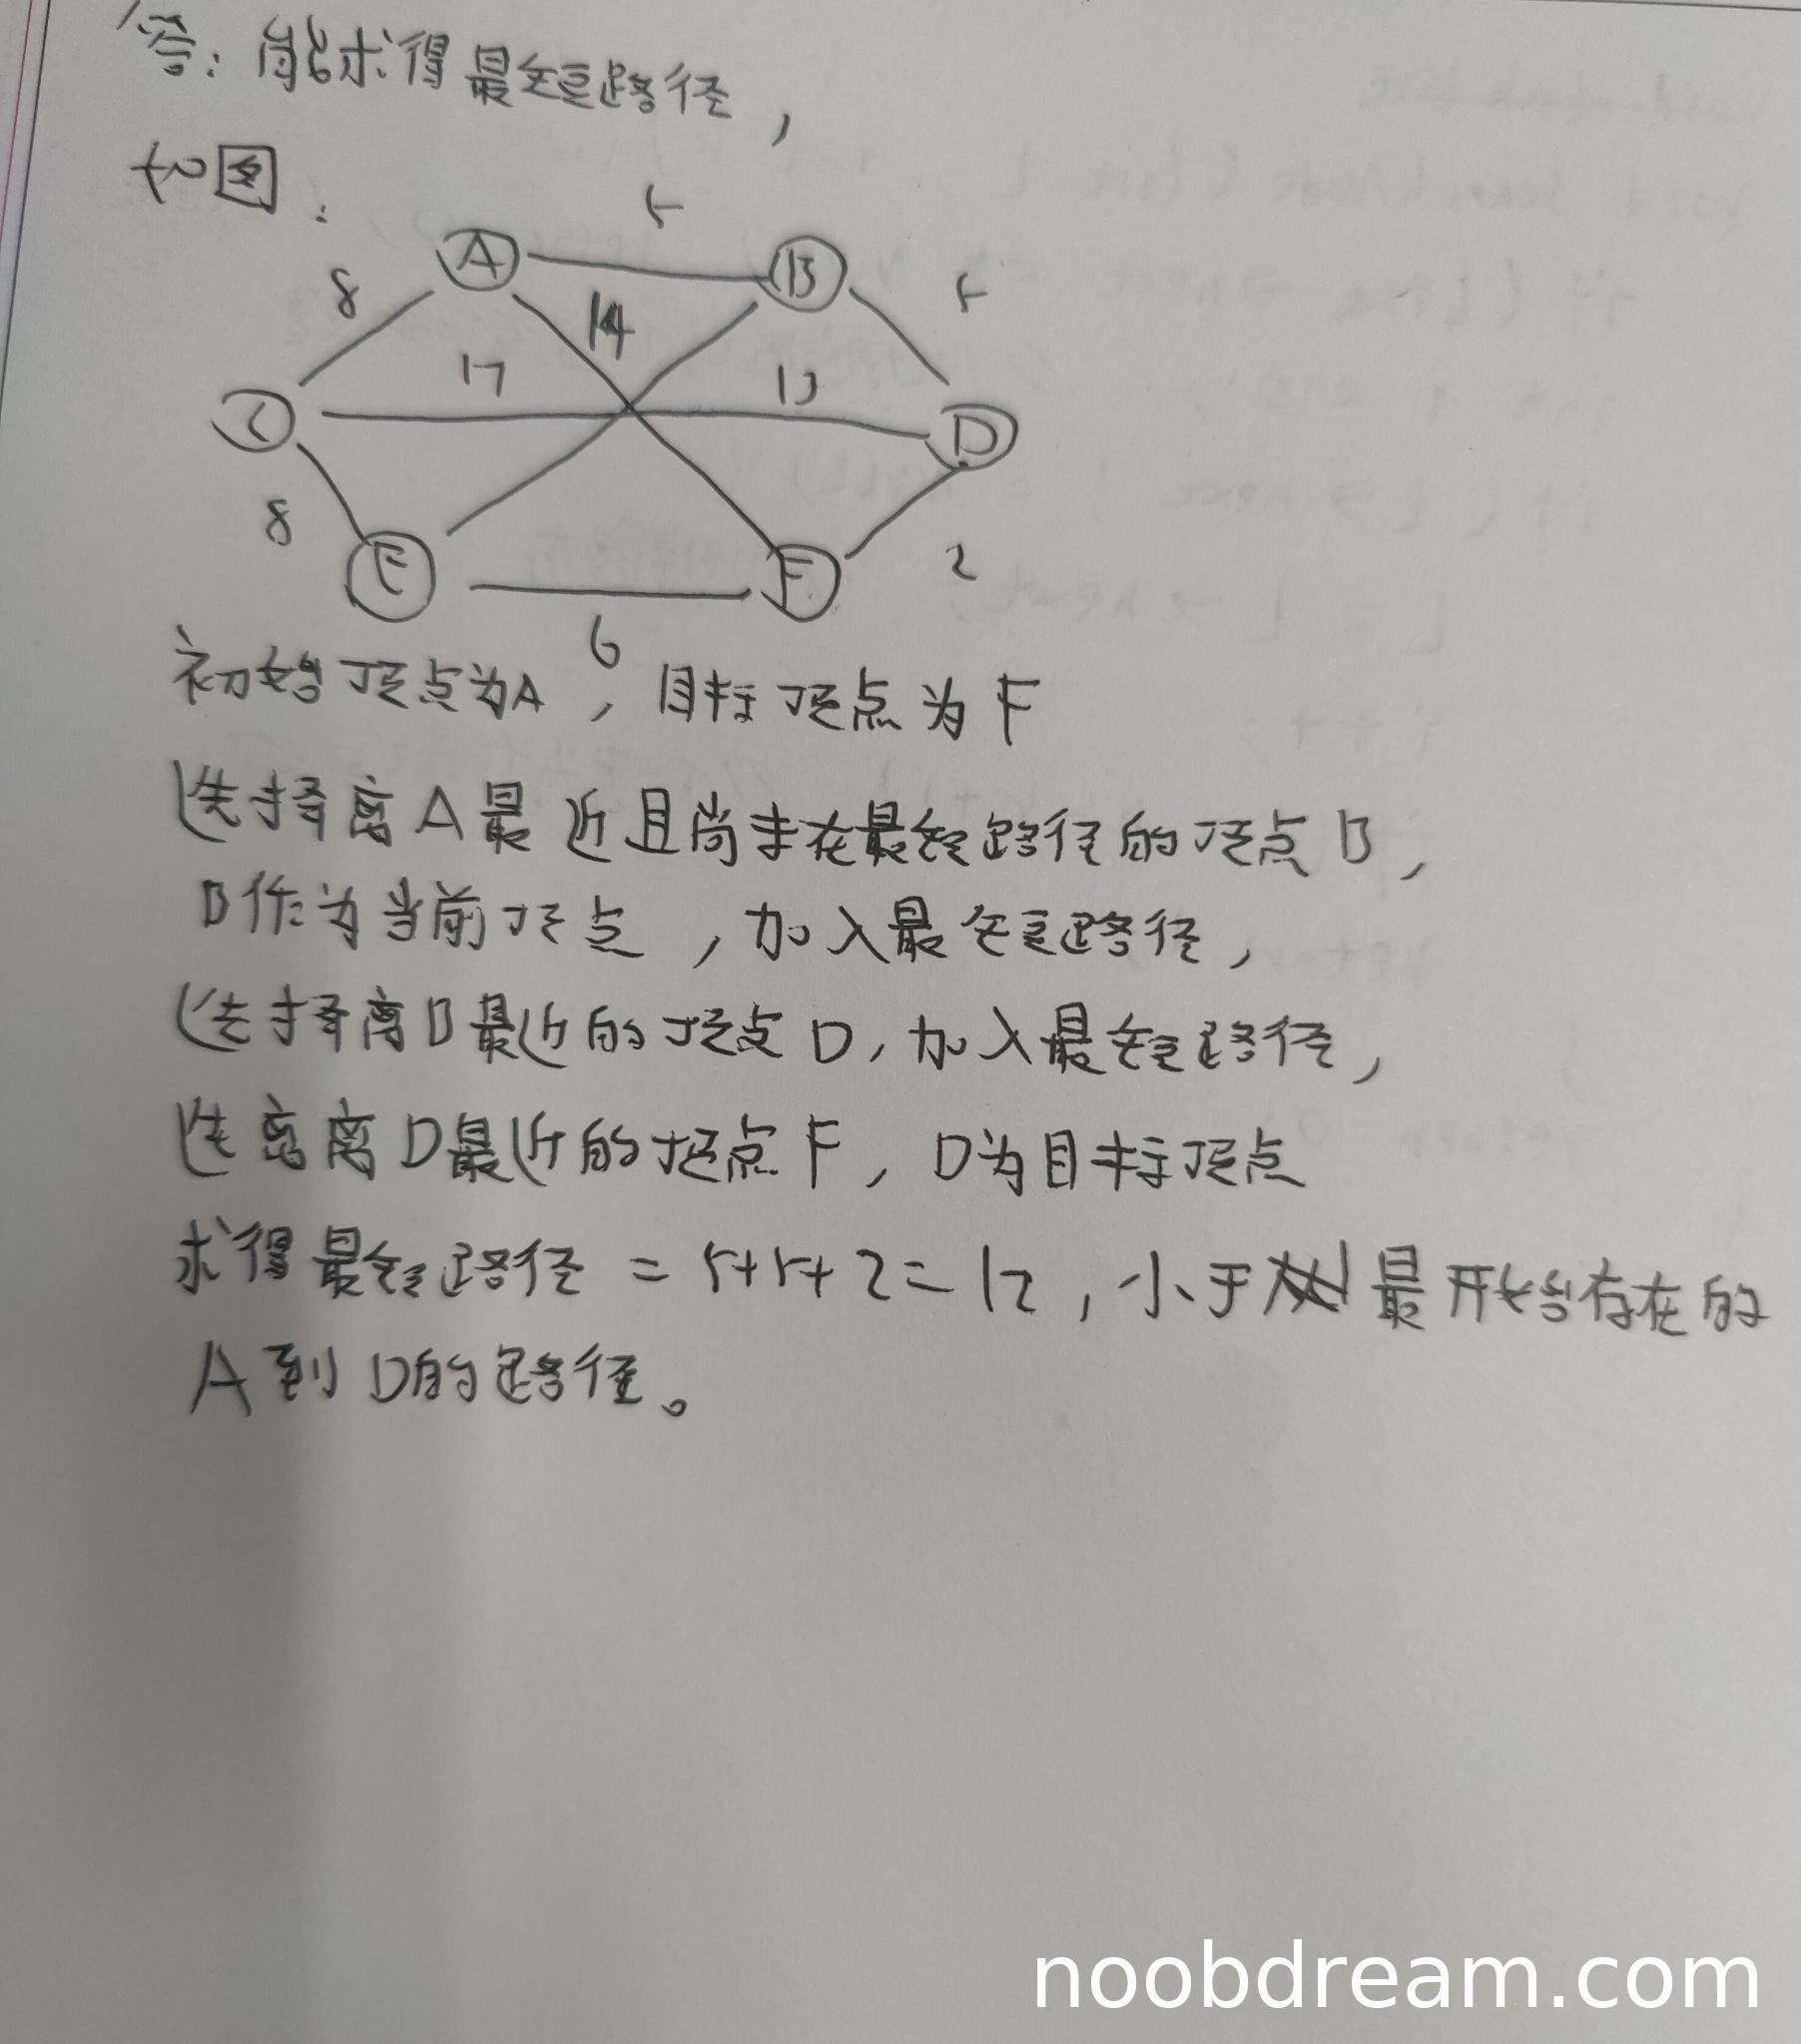 答：能求得最短路径，
如图：
5
A
B
8
14
5
17
13
C
D
8
E
F
2
6
初始顶点为A，目标顶点为F
选择离A最近且尚未在最短路径的顶点B，
B作为当前顶点，加入最短路径，
选择离B最近的顶点D，加入最短路径，
选离离D最近的顶点F，D为目标顶点
求得最短路径=5+5+2=12，小于最开始存在的
A到D的路径。
noobdream.com